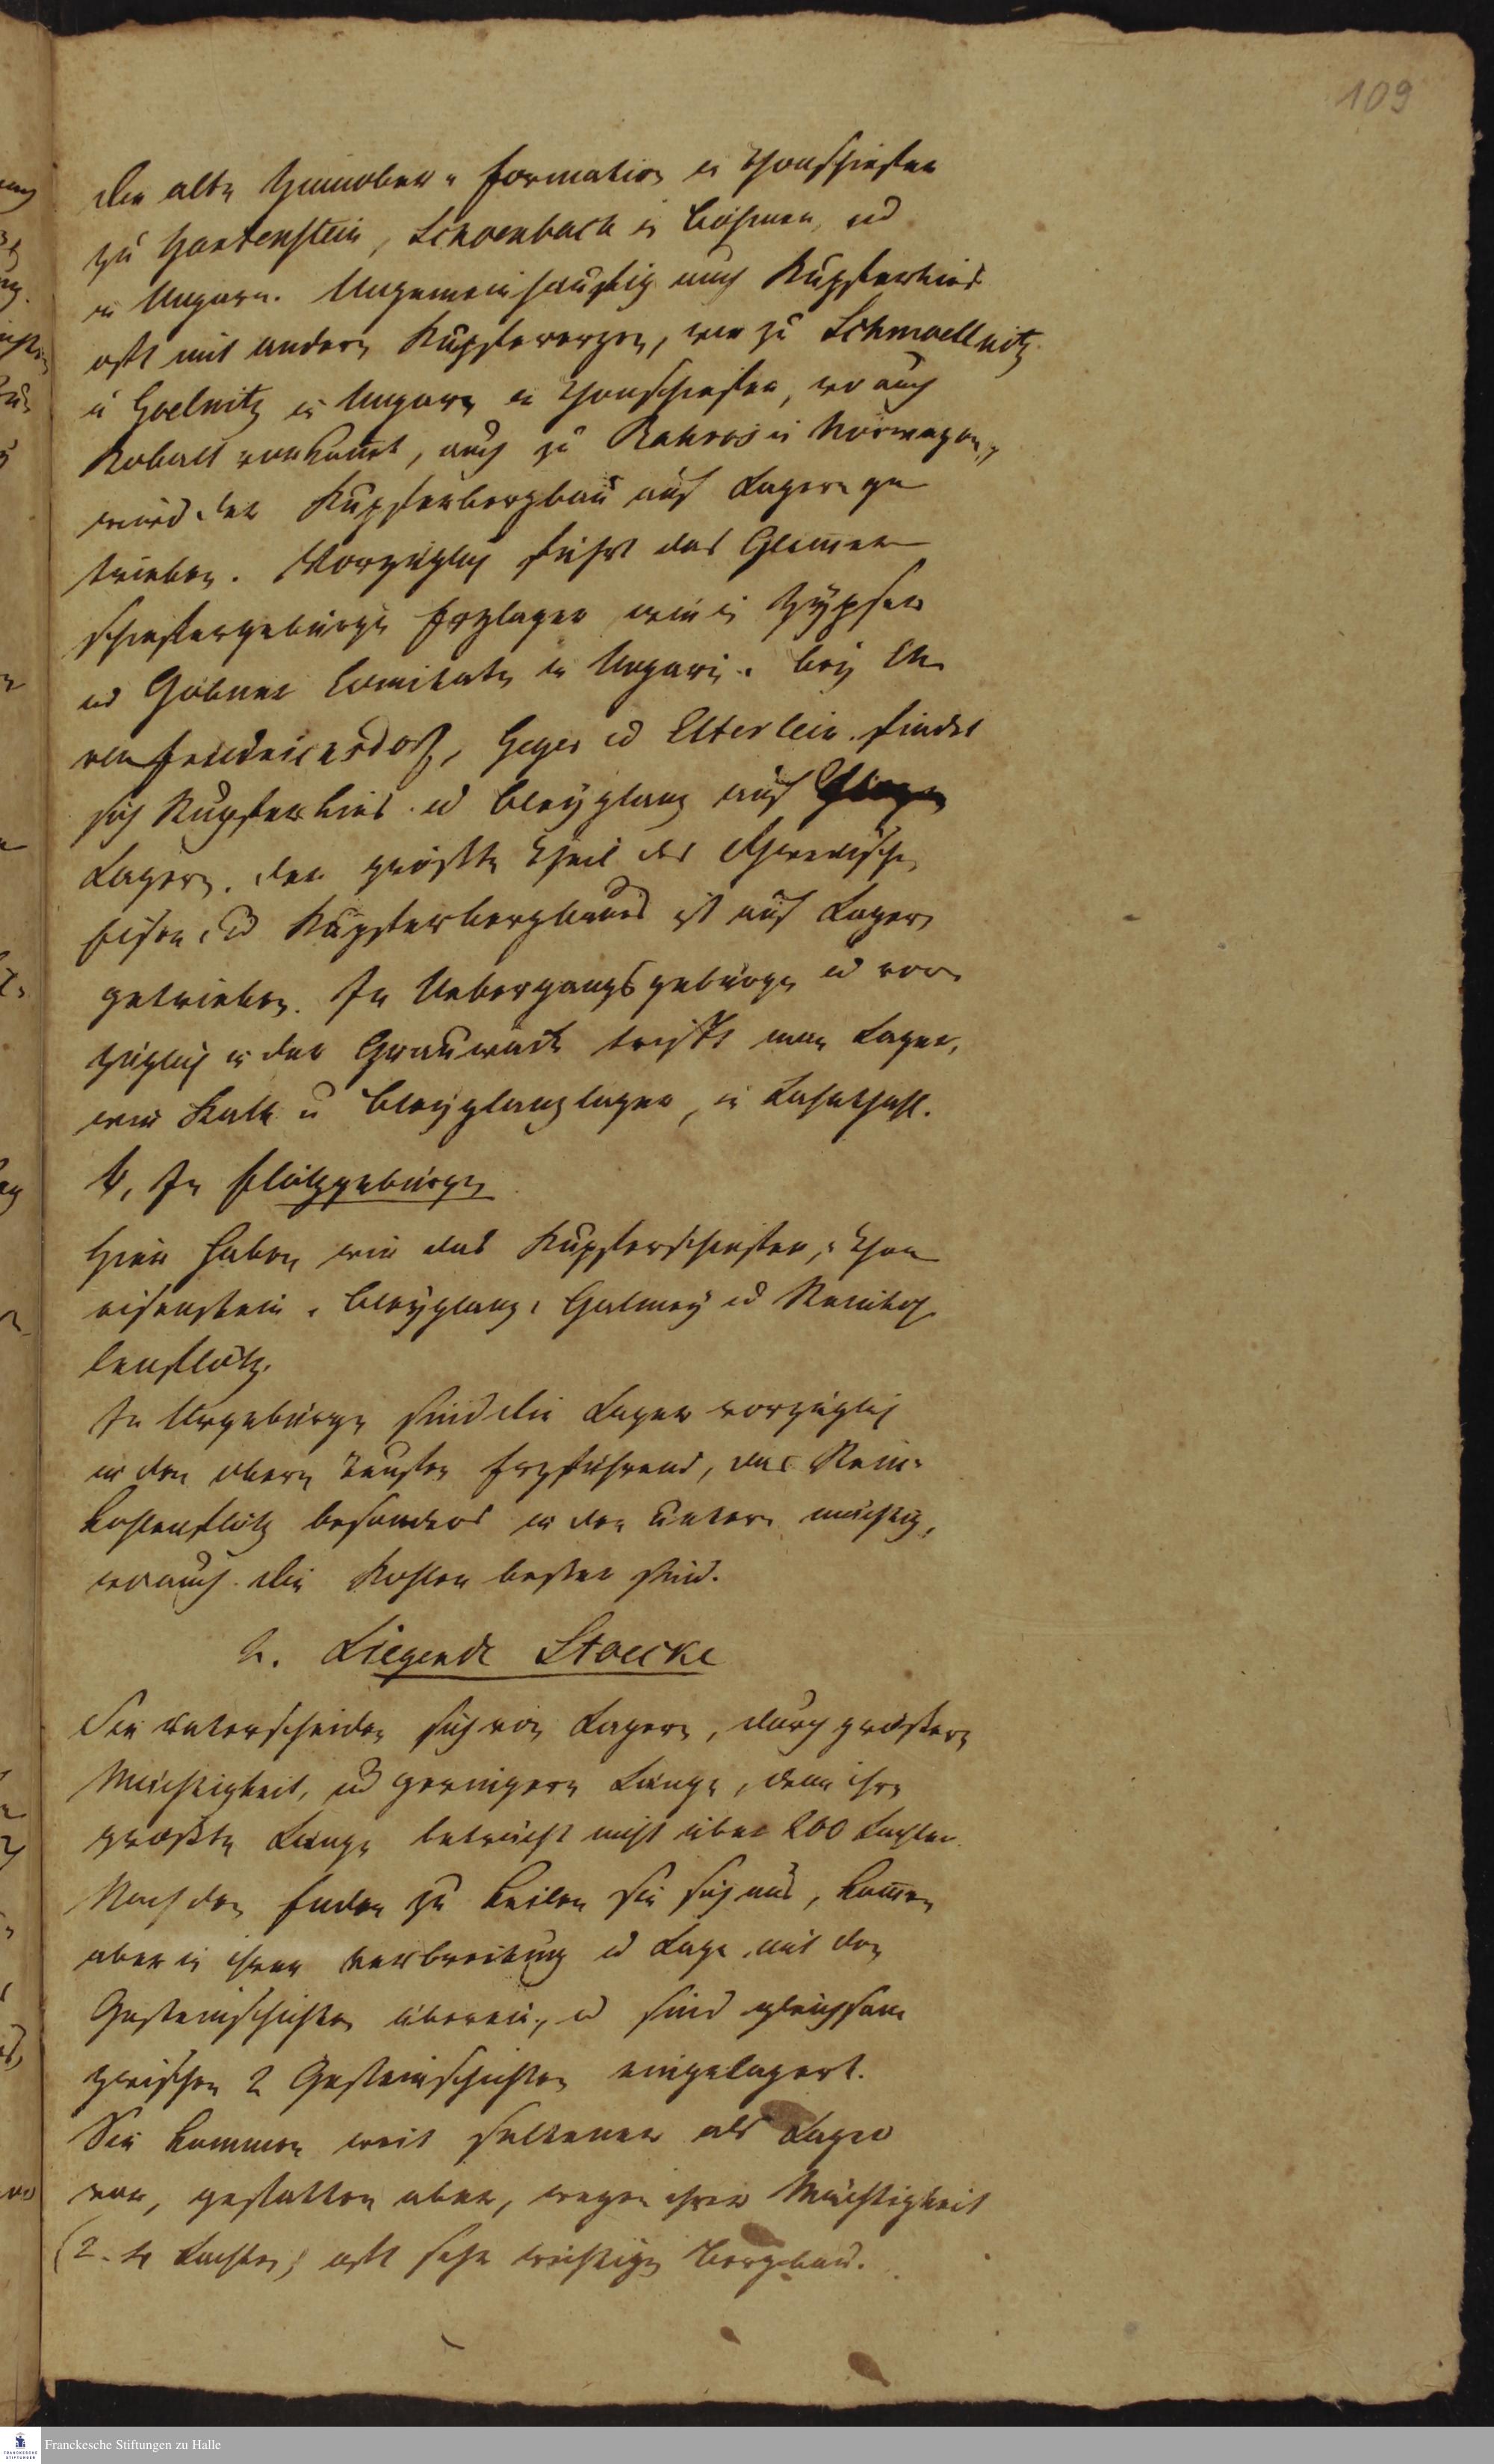 109
die alte Zinnober - Formation in Thonschiefer
zu Hartenstein, Schoenbach in Böhmen, ud
in Ungarn. Ungemein häufig auch Kupferkies
oft mit andern Kupfererzen, wie zu Schmoellnitz
u Goelnitz in Ungarn in Thonschiefer, wo auch
Kobalt vorkom̅t, auch zu in Norwegen
wird der Kupferbergbau auf Lagern ge
trieben. Vorzüglich führt das Glim̅er
schiefergebürge Erzlager wie im Zypser
ud Comitate in Ungarn. bey
Friedrichsdorf, Geyer ud Elterlein findet
sich Kupferkies ud Bleyglanz auf
Lagern. der größte Theil des Schwedischen
Eisen ud Kupferbergbaues ist auf Lagern
getrieben. In Uebergangsgebürge ud vor
züglich in der Grauwacke trifft man Lager,
wie Kalk u Bleyglanzlager, in
b, In Flötzgebürgen
Hier haben wir das Kupferschiefer, Thon
eisenstein, Bleyglanz, Galmey ud Steinkoh
lenflötz.
In Urgebürge sind die Lager vorzüglich
in den obern Teufen Erzführend, das Stein-
kohlenflötz besonders in den untern mächtig,
wo auch die Kohlen besser sind.
2. Liegende Stoecke
Sie unterscheiden sich von Lagern, durch größere
Mächtigkeit, ud geringere Länge, denn ihre
größte Länge beträcht nicht über 200 Lachter.
Nach den Enden zu keilen sie sich aus, kom̅en
aber in ihrer Verbreitung ud Lage mit den
Gesteinschichten überein, ud sind gleichsam
zwischen 2 Gesteinschichten eingelagert.
Sie kommen weit seltener als Lager
vor, gestatten aber, wegen ihrer Mächtigkeit
(2-4 Lachter) oft sehr wichtigen Bergbau.
Franckesche Stiftungen zu Halle